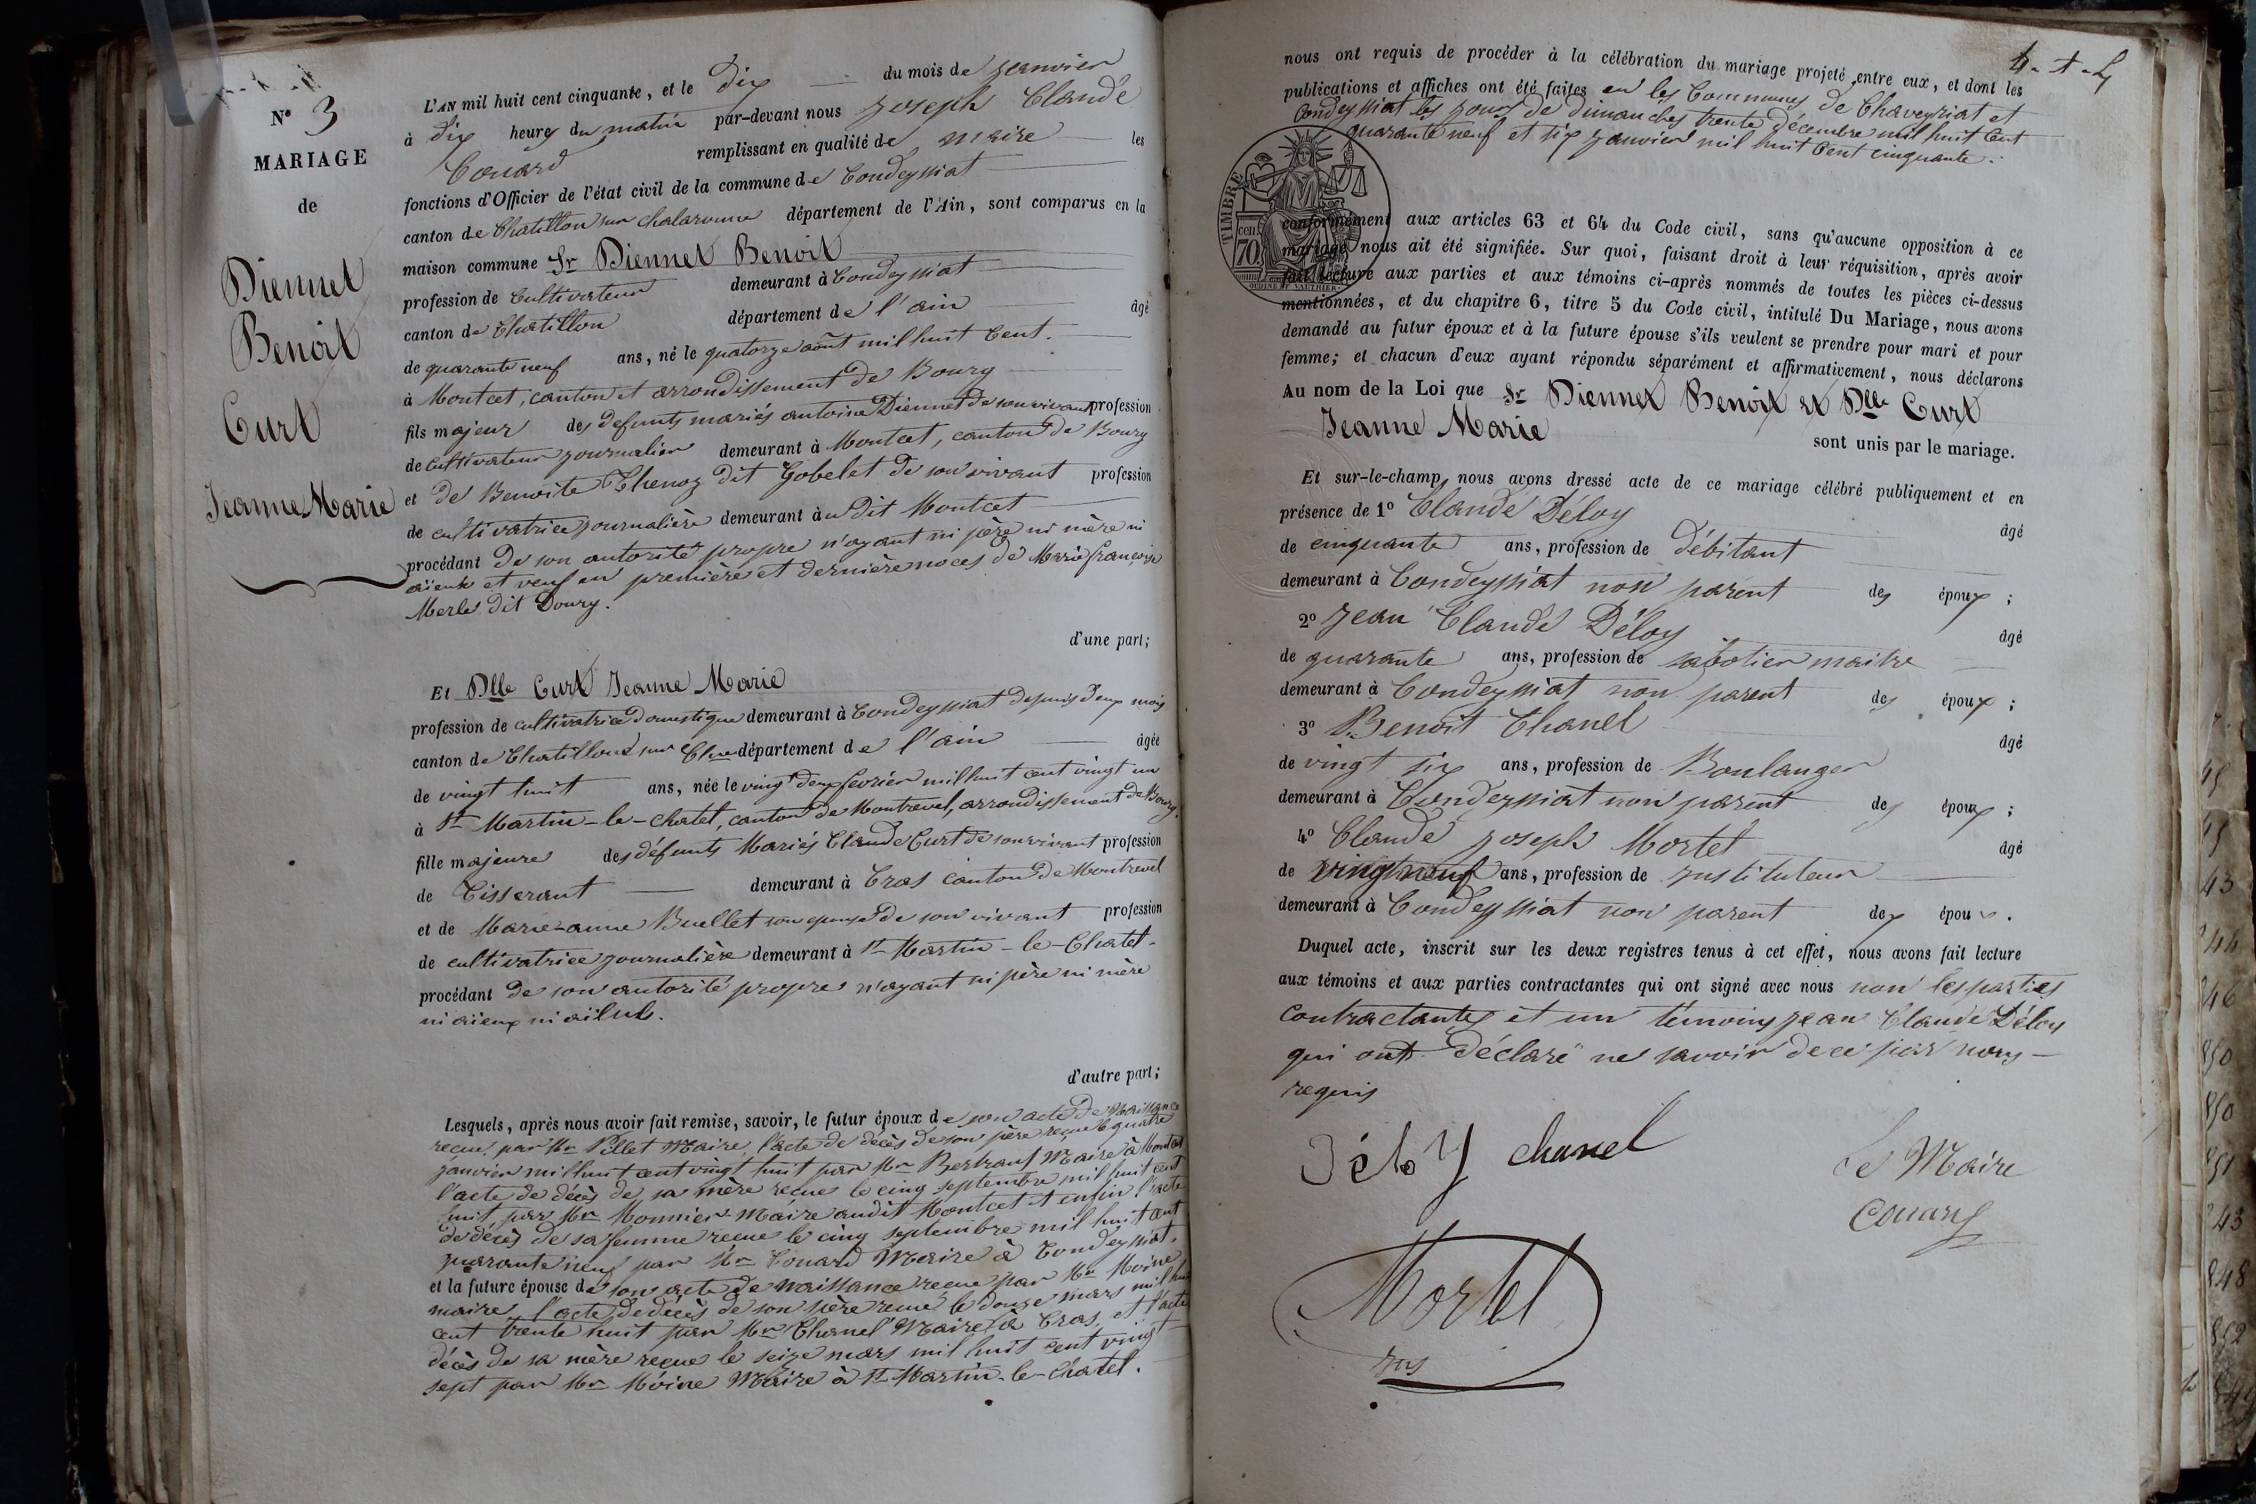 N° 3
MARIAGE
de
Diennet
Benoit
Curt
Jeanne Marie
L'AN mil huit cent cinquante, et le dix du mois de janvier
à dix heures du matin par-devant nous Joseph Claude
Couard remplissant en qualité de maire les
fonctions d'Officier de l'état civil de la commune de Condeyssiat
canton de Chatillon sur Chalaronne département de l'Ain, sont comparus en la
maison commune Sr Diennet Benoit
profession de Cultivateur demeurant à Condeyssiat
canton de Chatillon département de l'ain âgé
de quarante neuf ans, né le quatorze août mil huit Cent.
à Montcet, canton et arrondissement de Bourg
fils majeur des defunts mariés antoine Diennet de son vivant profession
de cultivateur journalier demeurant à Montcet, canton de Bourg
et de Benoite Thenoz dit Gobelet de son vivant profession
de cultivatrice journalière demeurant à u dit Montcet
procédant de son autorité propre n'ayant ni père ni mère ni
aïeux et veuf en première et dernière noces de Marie françoise
Merle dit Doury.
d'une part;
Et Dlle Curt Jeanne Marie
profession de cultivatrice domestique demeurant à Condeyssiat depuis deux mois
canton de Chatillon sur Chne département de l'ain âgée
de vingt huit ans, née le vingt deux fevrier mil huit cent vingt un
à St Martin-le-chatel, canton de Montrevel, arrondissement de Bourg.
fille majeure des défunts Mariés Claude Curt de son vivant profession
de Tisserant demeurant à Cras canton de Montrevel
et de Marie-anne Buellet son epouse de son vivant profession
de cultivatrice journalière demeurant à St Martin-le-Chatel-
procédant de son autorité propre n'ayant ni père ni mère
ni aïeux ni aïeules.
d'autre part;
Lesquels, après nous avoir fait remise, savoir, le futur époux de son acte de Naissance
reçue par Mr Pillet Maire, l'acte de décès de son père reçue le quatre
janvier mil huit cent vingt huit par Mr Bertrand Maire à Montcet
l'acte de décès de sa mère reçue le cinq septembre mil huit cent
huit par Mr Monnier Maire audit Montcet et enfin l'acte
de décès de sa femme reçue le cinq septembre mil huit cent
quarante neuf par Mr Couard Maire à Condeyssiat.
et la future épouse de son acte de naissance reçue par Mr Moine
maire, l'acte de décès de son père reçue le douze mars mil huit
cent trente huit par Mr Chanel Maire à Cras, et l'acte
décès de sa mère reçue le seize mars mil huit cent vingt
sept par Mr Moine Maire à St Martin-le-Chatel.
nous ont requis de procéder à la célébration du mariage projeté entre eux, et dont les
publications et affiches ont été faites en les Communes de Chaveyriat et
Condeyssiat les jours de dimanches trente décembre mil huit Cent
quarante neuf et six janvier mil huit Cent cinquante.
TIMBRE
70
conformément aux articles 63 et 64 du Code civil, sans qu'aucune opposition à ce
mariage nous ait été signifiée. Sur quoi, faisant droit à leur réquisition, après avoir
fait lecture aux parties et aux témoins ci-après nommés de toutes les pièces ci-dessus
mentionnées, et du chapitre 6, titre 5 du Code civil, intitulé Du Mariage, nous avons
demandé au futur époux et à la future épouse s'ils veulent se prendre pour mari et pour
femme; et chacun d'eux ayant répondu séparément et affirmativement, nous déclarons
Au nom de la Loi que Sr Diennet Benoit et Dlle Curt
Jeanne Marie
sont unis par le mariage.
Et sur-le-champ, nous avons dressé acte de ce mariage célébré publiquement et en
présence de 1° Claude Déloy âgé
de cinquante ans, profession de débitant
demeurant à Condeyssiat non parent des époux;
2° Jean Claude Déloy âgé
de quarante ans, profession de sabotier maitre
demeurant à Condeyssiat non parent des époux;
3° Benoit Chanel âgé
de vingt six ans, profession de Boulanger
demeurant à Condeyssiat non parent des époux;
4° Claude Joseph Mortel âgé
de vingt neuf ans, profession de Instituteur
demeurant à Condeyssiat non parent des époux.
Duquel acte, inscrit sur les deux registres tenus à cet effet, nous avons fait lecture
aux témoins et aux parties contractantes qui ont signé avec nous non les parties
contractantes et un témoins jean Claude Déloy
qui ont déclaré ne savoir de ce par nous
requis
Déloy chanel
Le Maire
Couard
Mortel